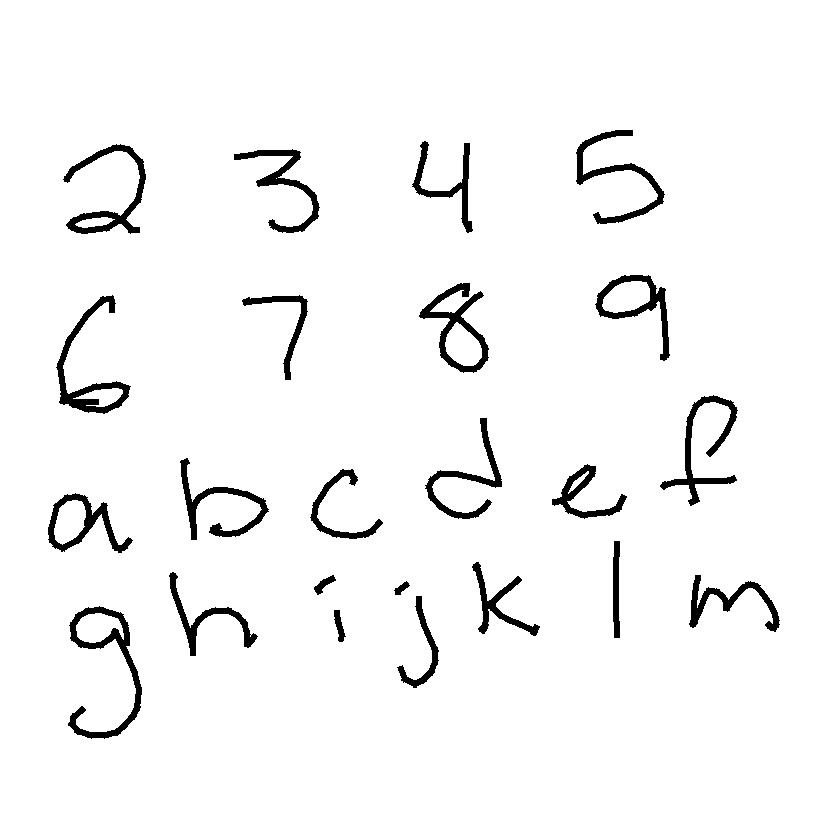 2 3 4 5
6 7 8 9
a b c d e f
g h i j k l m